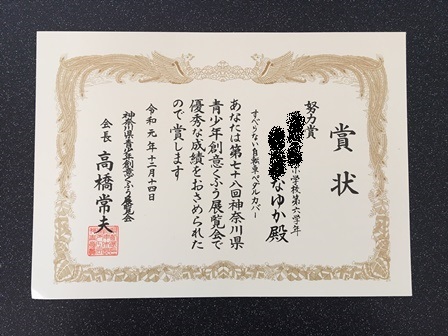 賞状
努力賞
小学校第六学年
なゆか殿
すべらない自転車ペダルカバー
あなたは第七十八回神奈川県
青少年創意くふう展覧会で
優秀な成績をおさめられた
ので賞します
令和元年十二月十四日
神奈川県青少年創意くふう展覧会
会長 高橋常夫